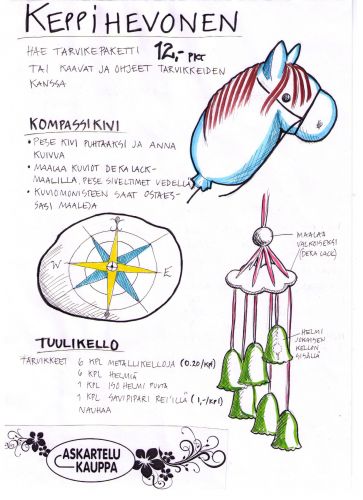 KEPPIHEVONEN
HAE TARVIKEPAKETTI 12,- PKT
TAI KAAVAT JA OHJEET TARVIKKEIDEN
KANSSA
KOMPASSIKIVI
• PESE KIVI PUHTAAKSI JA ANNA
KUIVUA
• MAALAA KUVIOT DEKA LACK-
MAALILLA, PESE SIVELTIMET VEDELLÄ
• KUVIOMONISTEEN SAAT OSTAES-
SASI MAALEJA
W
E
MAALAA
VALKOISEKSI
(DEKA LACK)
HELMI
JOKAISEN
KELLON
SISÄLLÄ
TUULIKELLO
TARVIKKEET 6 KPL METALLIKELLOJA (0.20/KPL)
6 KPL HELMIÄ
1 KPL ISO HELMI PUUTA
1 KPL SAVIPIPARI REI'ILLÄ (1,-/KPL)
NAUHAA
ASKARTELU
KAUPPA